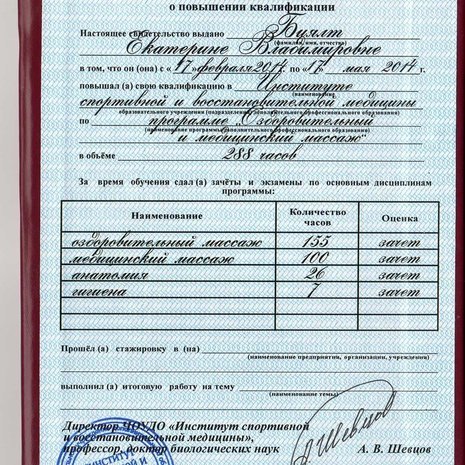 о повышении квалификации
Настоящее свидетельство выдано Буялт
(фамилия, имя, отчество)
Екатерине Владимировне
в том, что он (она) с « 17 » февраля 2014 г. по « 17 » мая 2014 г.
повышал (а) свою квалификацию в Институте
(наименование)
спортивной и восстановительной медицины
образовательного учреждения (подразделения) дополнительного профессионального образования)
по программе "Оздоровительный
(наименование программы дополнительного профессионального образования)
и медицинский массаж"
в объёме 288 часов
За время обучения сдал (а) зачёты и экзамены по основным дисциплинам
программы:
Наименование Количество часов Оценка
оздоровительный массаж 155 зачет
медицинский массаж 100 зачет
анатомия 26 зачет
гигиена 7 зачет
Прошёл (а) стажировку в (на)
(наименование предприятия, организации, учреждения)
выполнил (а) итоговую работу на тему
(наименование темы)
Директор ЧОУДО «Институт спортивной
и восстановительной медицины»,
профессор, доктор биологических наук А. В. Шевцов